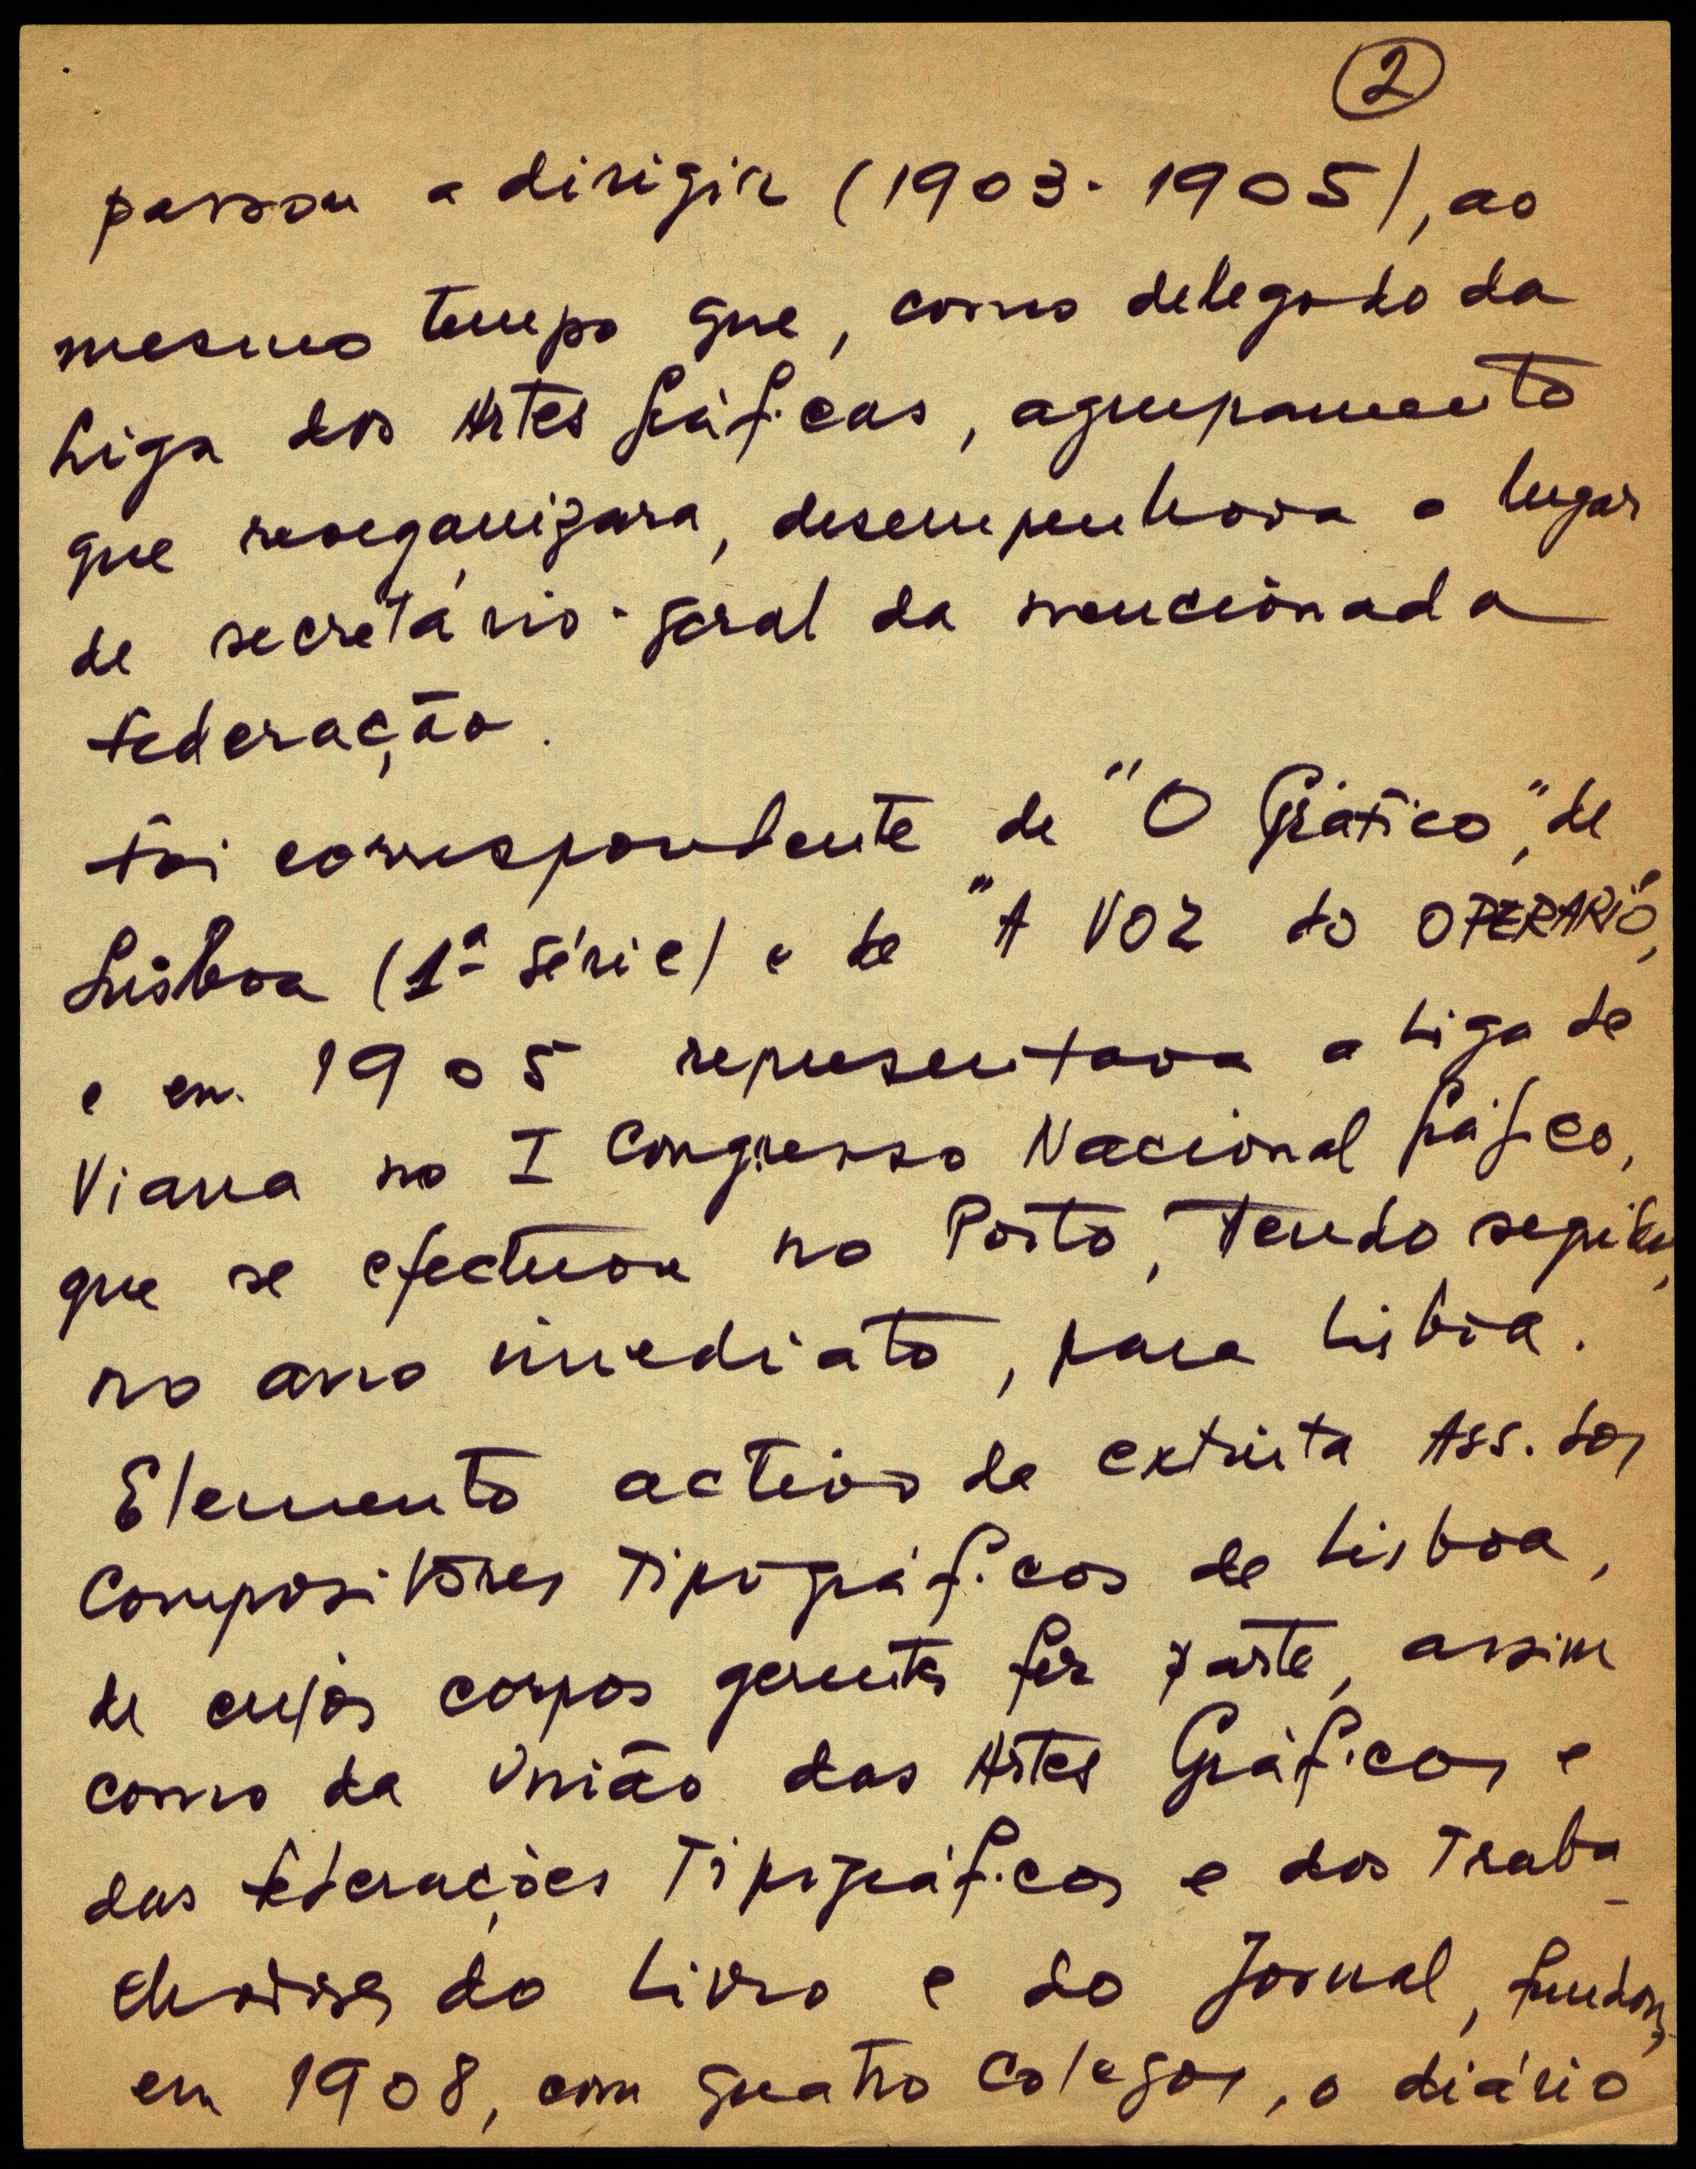 2
passou a dirigir (1903-1905), ao
mesmo tempo que, como delegado da
Liga das Artes Gráficas, agrupamento
que reorganizara, desempenhava o lugar
de secretário-geral da mencionada
federação.
Foi correspondente de "O Gráfico," de
Lisboa (1ª série) e de "A VOZ do OPERARIO",
e em 1905 representava a Liga de
Viana no I Congresso Nacional Gráfico,
que se efectuou no Porto, tendo seguido,
no ano imediato, para Lisboa.
Elemento activo da extinta Ass. dos
Compositores Tipográficos de Lisboa,
de cujos corpos gerentes fez parte, assim
como da União das Artes Gráficas e
das Federações Tipográficas e dos Traba-
lhadores do Livro e do Jornal, fundou,
em 1908, com quatro colegas, o diário